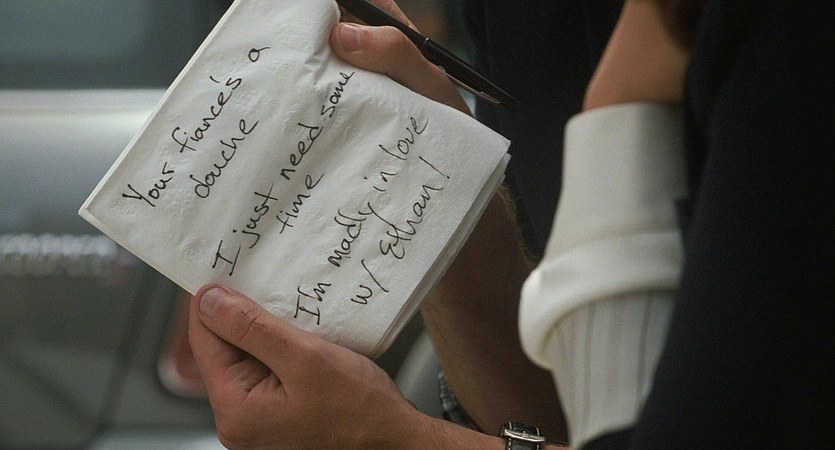 Your fiancé's a
douche
I just need some
time
I'm madly in love
w/ Ethan!